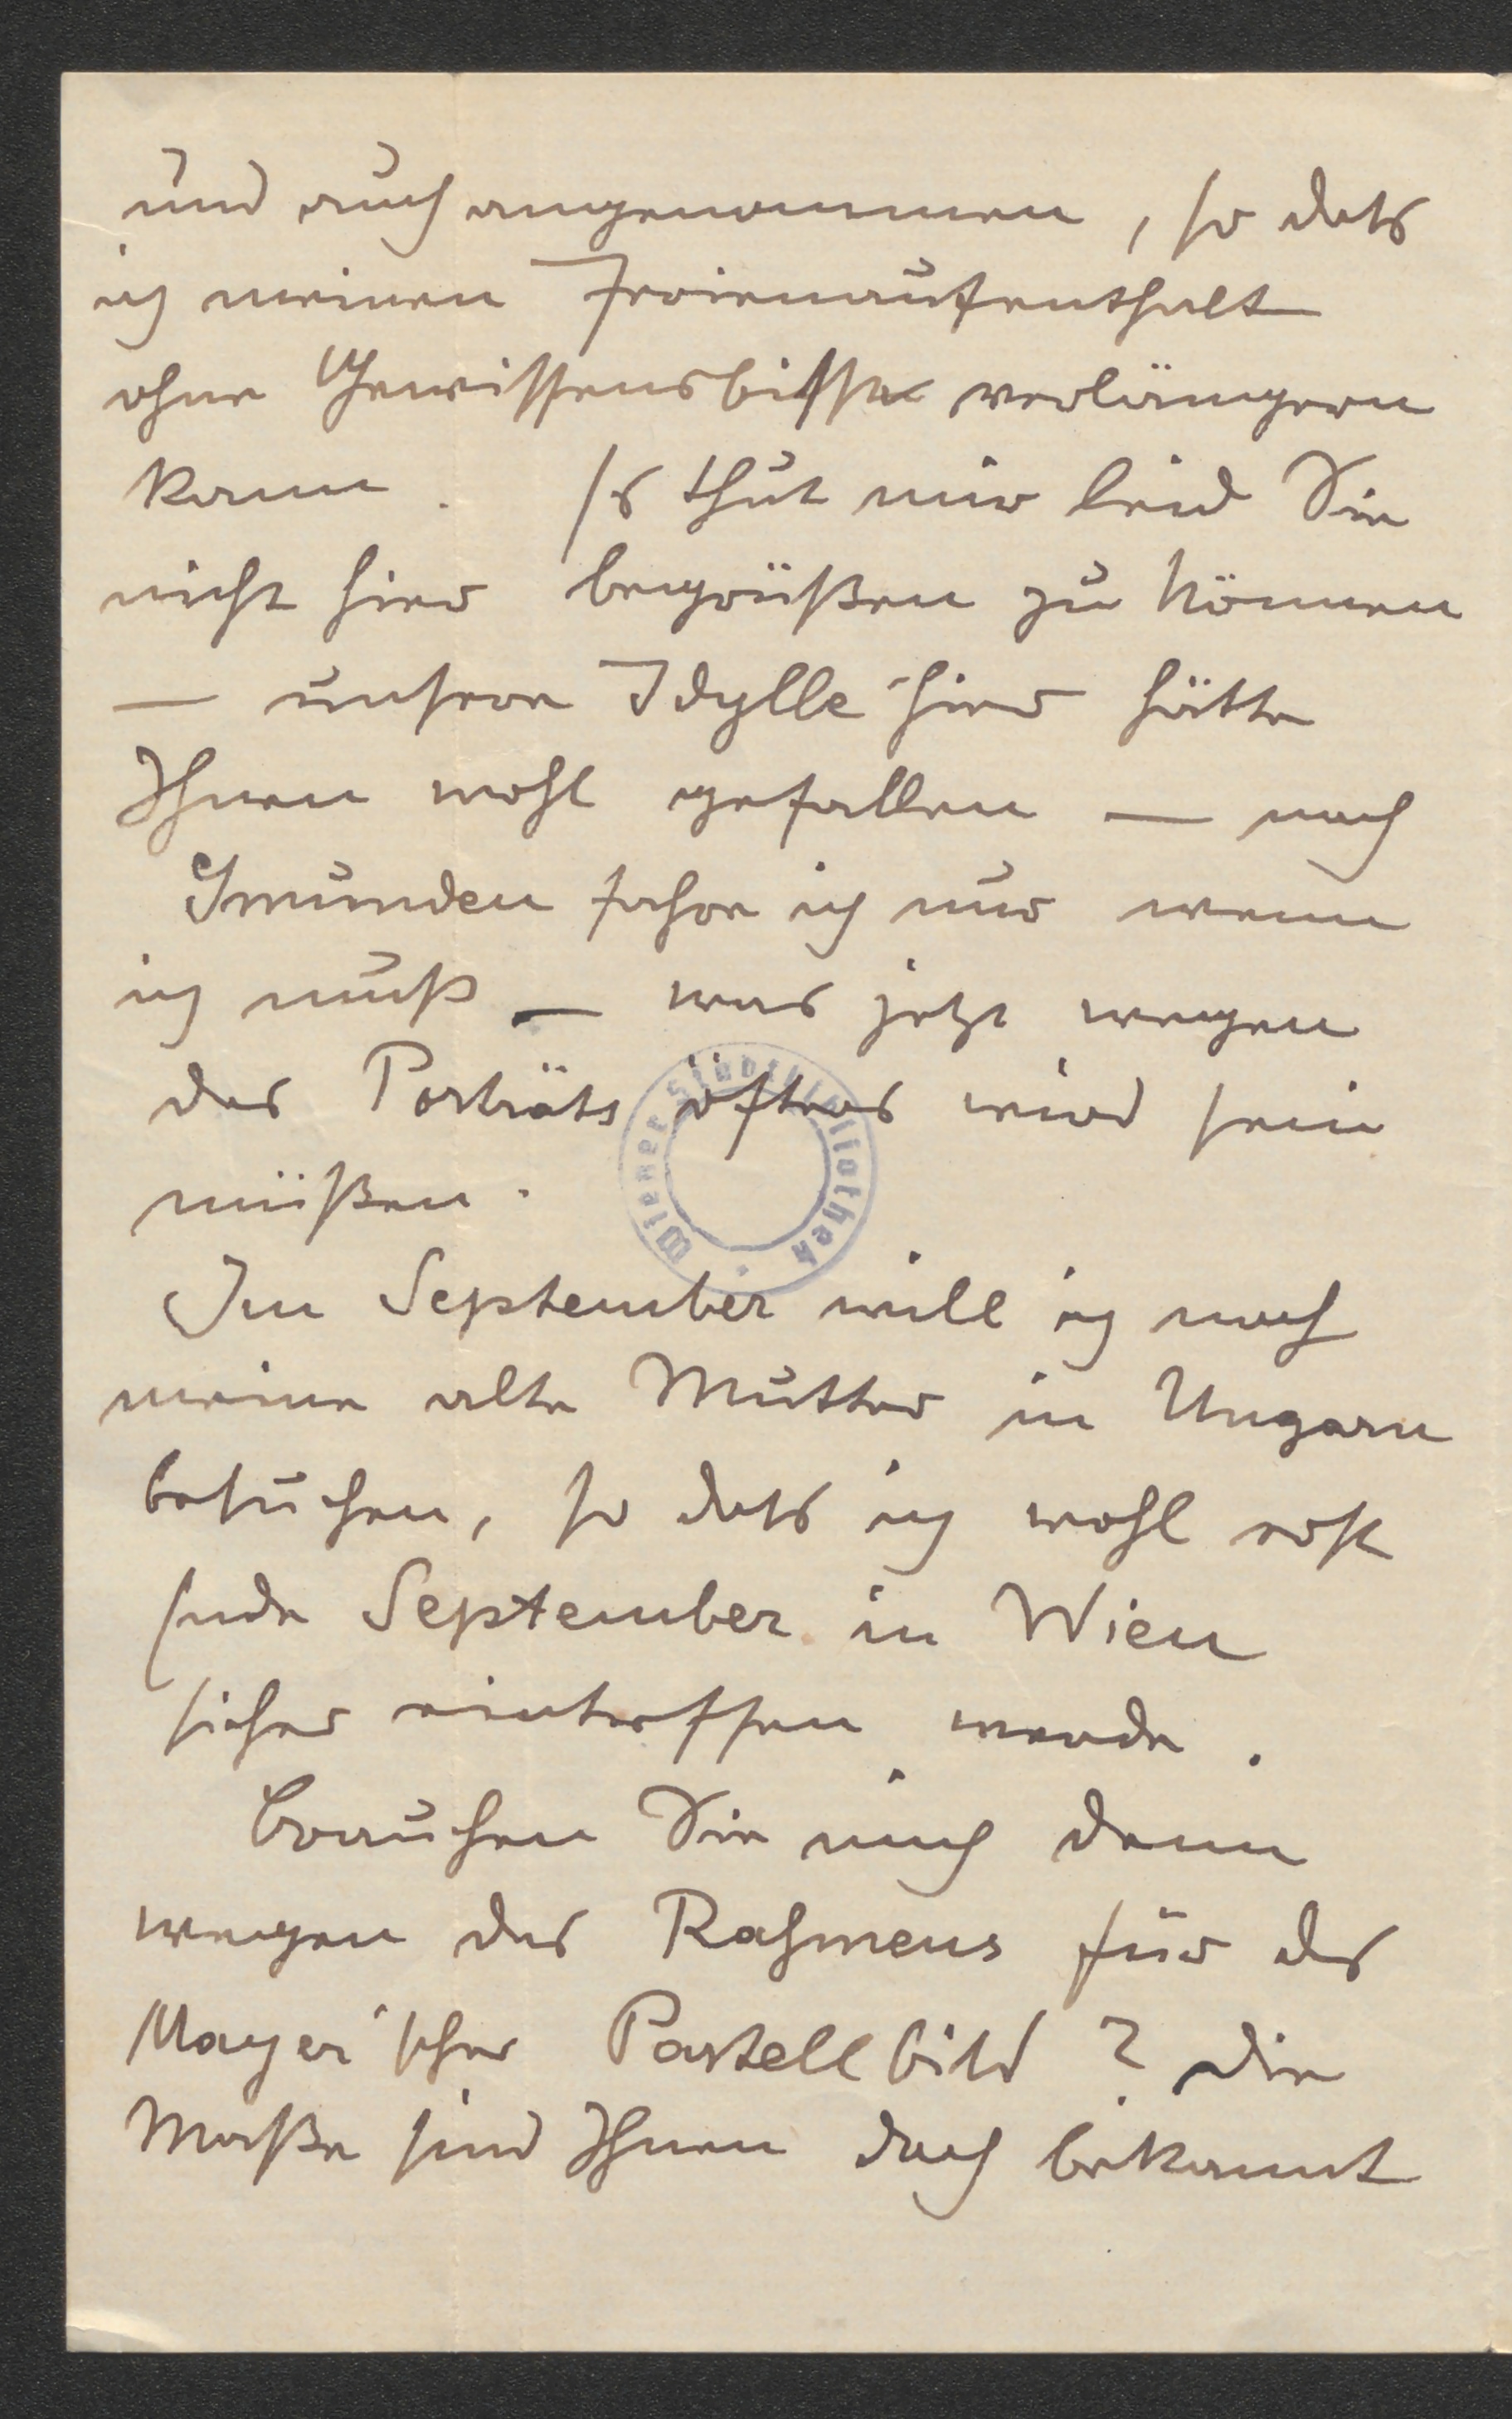 und auch angenommen, so dats
ich meinen Ferienaufenthalt
ohne Gewissensbisse verlängern
kann. Es thut mir leid Sie
nicht hier begrüßen zu können
— unsere Idylle hier hätte
Ihnen wohl gefallen — nach
Gmunden fahre ich nur wenn
ich muß — was jetzt wegen
des Porträts öfters wird sein
müßen.
Wiener Stadtbibliothek
Im September will ich noch
meine alte Mutter in Ungarn
besuchen, so dats ich wohl erst
Ende September in Wien
sicher eintreffen werde.
Brauchen Sie mich denn
wegen des Rahmens für das
Mayer'sche Pastellbild? Die
Maße sind Ihnen doch bekannt